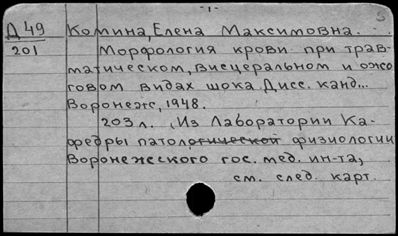 -1-
5
Д 49 Комина, Елена Максимовна.
201 Морфология крови при трав-
матическом, висцеральном и ожо-
говом видах шока. Дисс. канд...
Воронеж, 1948.
203 л. (Из Лаборатории Ка-
федры патологической физиологии
Воронежского гос. мед. ин-та,
см. след. карт.